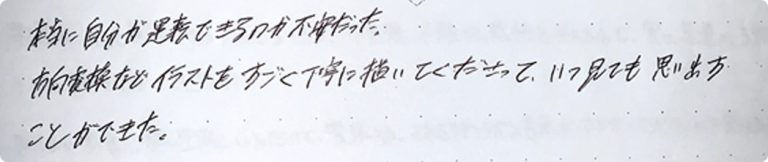 本当に自分が運転できるのか不安だった。
方向変換などイラストもすごく丁寧に描いてくださって、いつ見ても思い出す
ことができた。